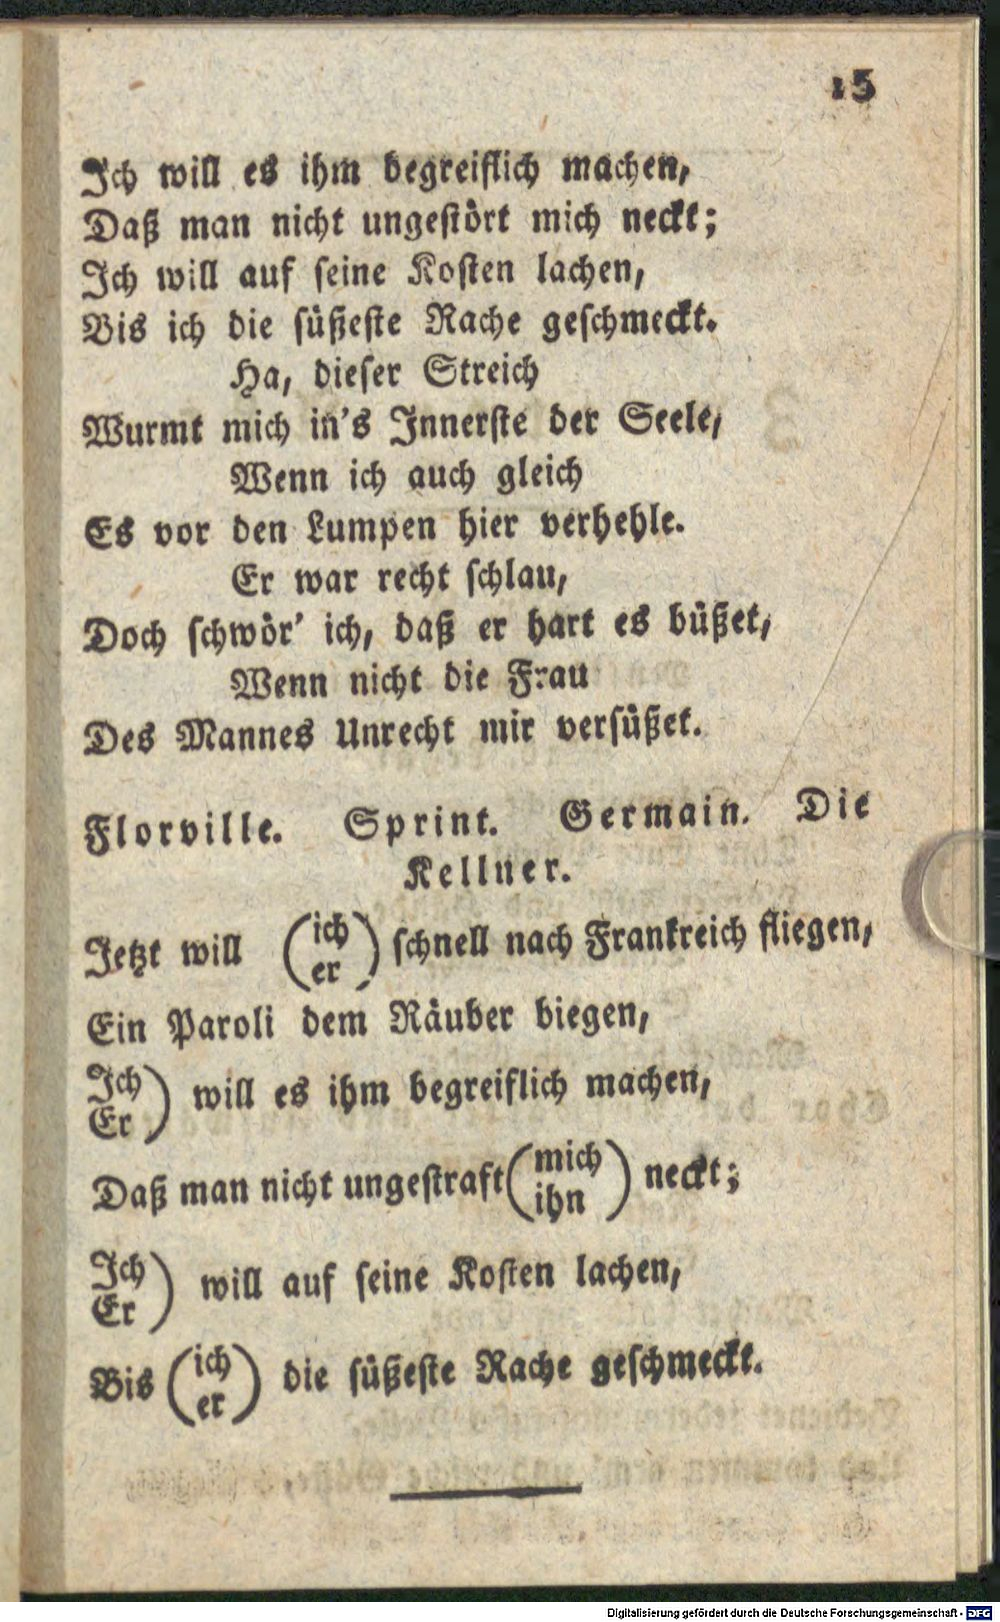 15
Ich will es ihm begreiflich machen,
Daß man nicht ungestört mich neckt;
Ich will auf seine Kosten lachen,
Bis ich die süßeste Rache geschmeckt.
Ha, dieser Streich
Wurmt mich in's Innerste der Seele,
Wenn ich auch gleich
Es vor den Lumpen hier verhehle.
Er war recht schlau,
Doch schwör' ich, daß er hart es büßet,
Wenn nicht die Frau
Des Mannes Unrecht mir versüßet.
Florville. Sprint. Germain. Die
Kellner.
Jetzt will (ich
er) schnell nach Frankreich fliegen,
Ein Paroli dem Räuber biegen,
Ich
Er) will es ihm begreiflich machen,
Daß man nicht ungestraft (mich
ihn) neckt;
Ich
Er) will auf seine Kosten lachen,
Bis (ich
er) die süßeste Rache geschmeckt.
Digitalisierung gefördert durch die Deutsche Forschungsgemeinschaft - DFG